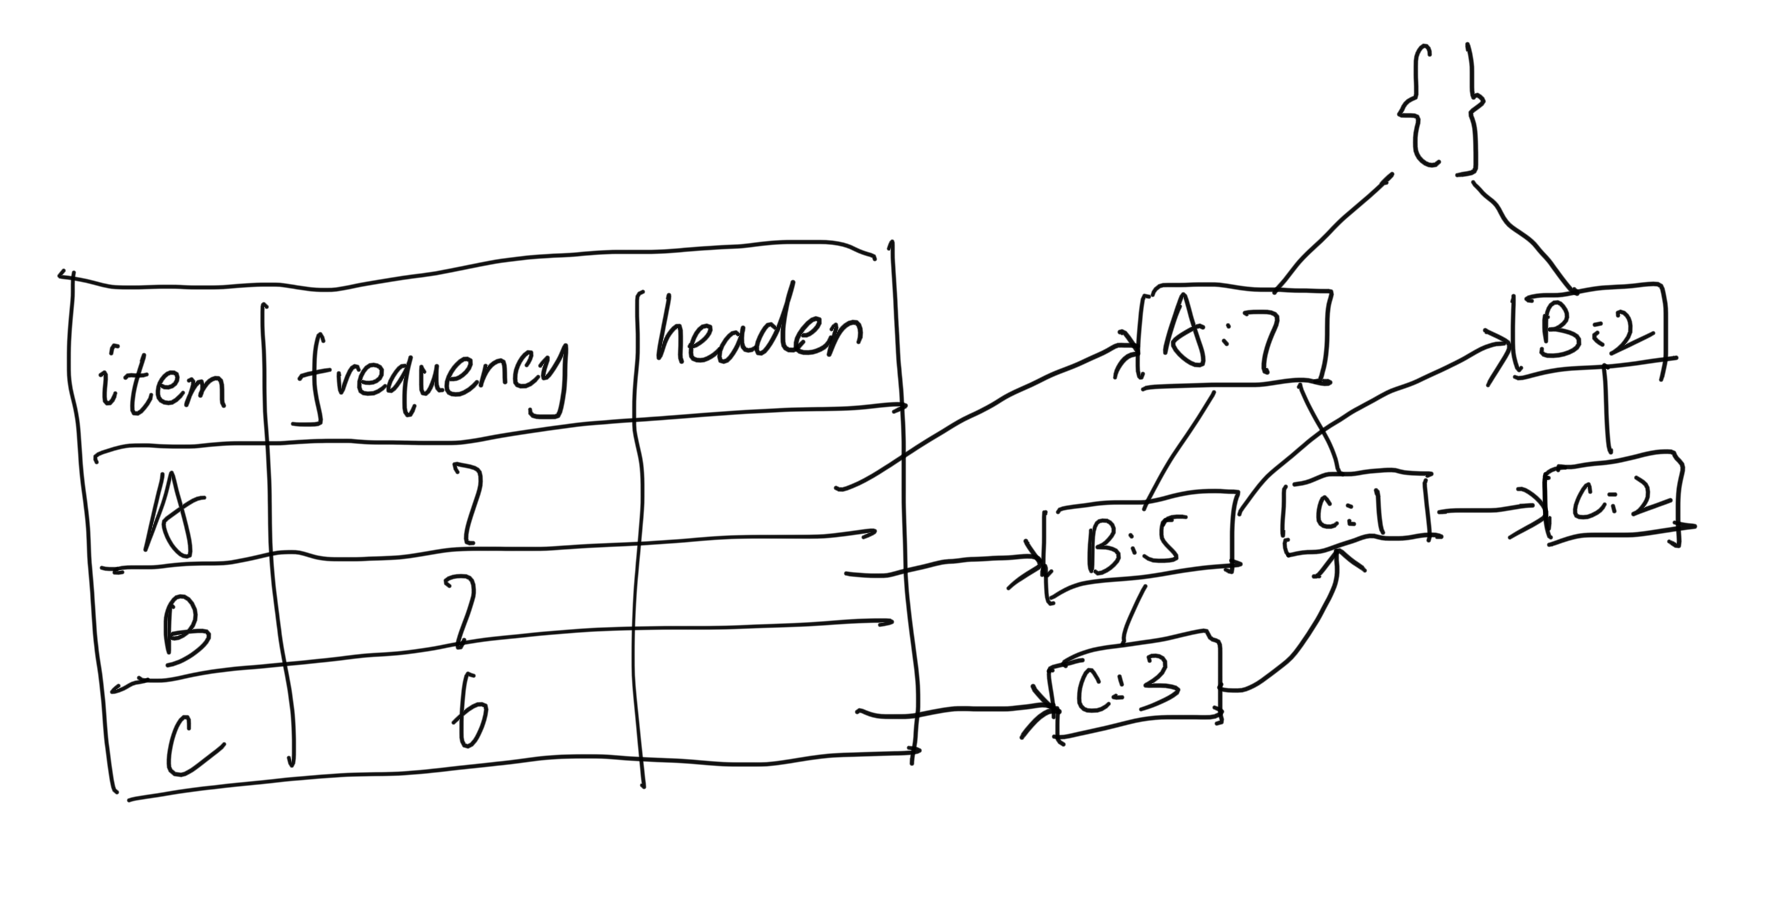 { }
item frequency header
A 7
B 7
C 6
A:7 B:2
B:5 C:1 C:2
C:3